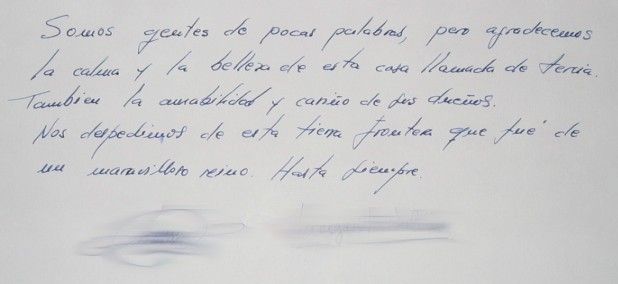 Somos gentes de pocas palabras, pero agradecemos
la calma y la belleza de esta casa llamada de tercia.
Tambien la amabilidad y cariño de sus dueños.
Nos despedimos de esta tierra frontera que fué de
un maravilloso reino. Hasta siempre.